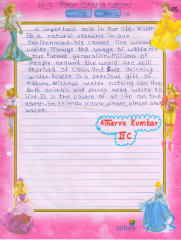 a important role in our life. Water
is a natural resource in our
Environment. We cannot live without
water. Manage the usage of water for
our future generation. Billions of
People around the world are still
deprived of clean and safe drinking
water. Water is a precious gift of
nature. Without water nothing can live
Both animals and plants need water to
live. It is the source of all life on the
earth. So Friends please, please, please save
water.
Atharva Kumkar
IV C
colors